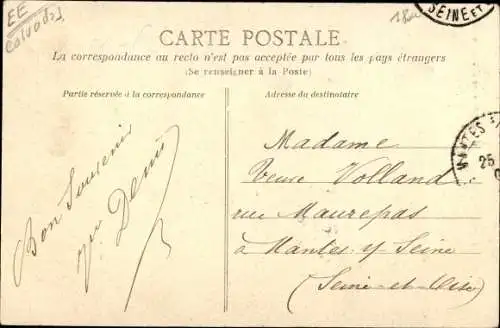 EE
Calvados
SEINE ET
CARTE POSTALE
La correspondance au recto n'est pas acceptée par tous les pays étrangers
(Se renseigner à la Poste)
Partie réservée à la correspondance
Adresse du destinataire
Bon Souvenir
Denis
Madame
Veuve Volland
rue Maurepas
à Mantes s/ Seine
(Seine-et-Oise)
MANTES
25